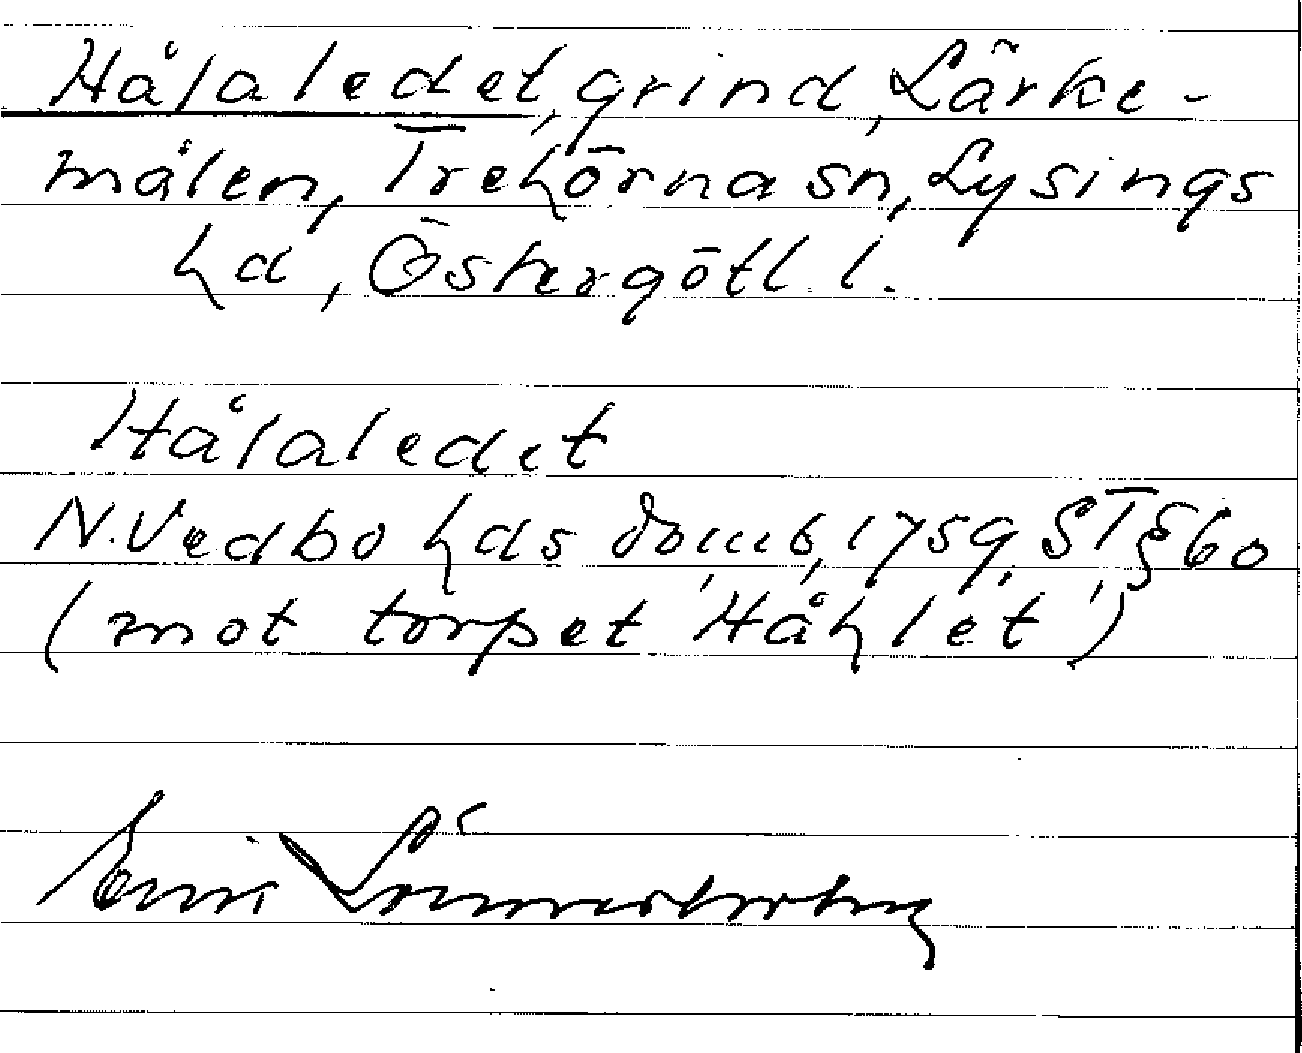 Hålaledet, grind, Lärke-
målen, Trehörna sn, Lysings
hd, Östergötl. l.
Hålaledet
N. Vedbo hds domb, 1759, ST § 60
(mot torpet 'Håhlet')